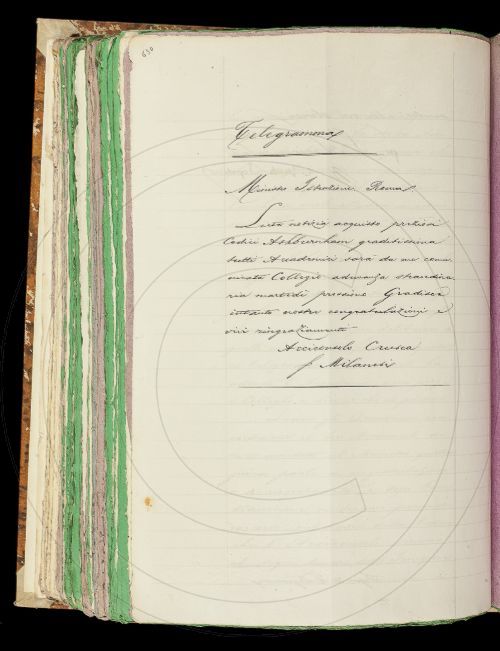 630
Telegramma
Ministro Istruzione Roma
Lieta notizia acquisto preziosi
Codici Ashburnham graditissima
tutti Accademici sarà da me comu
nicata Collegio adunanza straordina
ria martedì prossimo Gradisca
intanto nostre congratulazioni e
vivi ringraziamenti
Arciconsolo Crusca
f. Milanesi